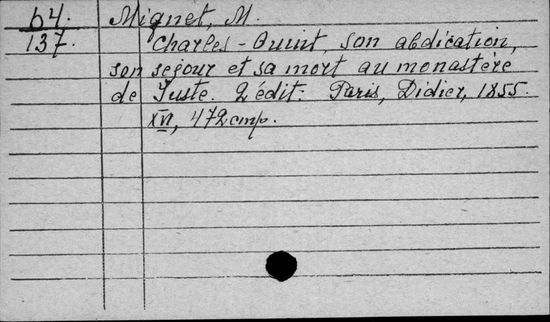 64.
137.
Mignet, M.
Charles-Quint, son abdication,
son sejour et sa mort au monastère
de Juste. 2 édit. Paris, Didier, 1855.
XVI, 472 стр.